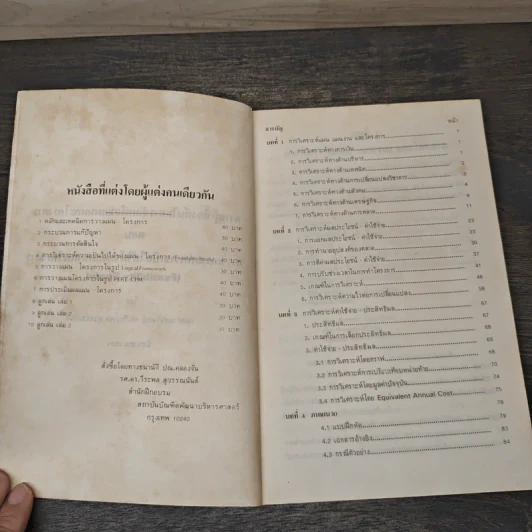 หนังสือที่แต่งโดยผู้แต่งคนเดียวกัน
1 หลักและเทคนิคการวางแผน - โครงการ 40 บาท
2 กระบวนการแก้ปัญหา 30 บาท
3 กระบวนการตัดสินใจ 40 บาท
4 การวิเคราะห์ความเป็นไปได้ของแผน - โครงการ บาท
5 การวางแผน - โครงการในรูป Logical Framework 30 บาท
6 การวางแผน โครงการในรูป PERT CPM 40 บาท
7 การประเมินผลแผน - โครงการ 40 บาท
8 ลูกเล่น เล่ม 1 บาท
9 ลูกเล่น เล่ม 2 บาท
10 ลูกเล่น เล่ม 3 บาท
สั่งซื้อโดยทางธนาณัติ ปณ.คลองจั่น
รศ.ดร.วีระพล สุวรรณนันต์
สำนักฝึกอบรม
สถาบันบัณฑิตพัฒนบริหารศาสตร์
กรุงเทพ 10240
สารบัญ
หน้า
บทที่ 1 การวิเคราะห์แผน แผนงาน และโครงการ 1
1. การวิเคราะห์ทางการเงิน
2. การวิเคราะห์ทางด้านบริหาร
3. การวิเคราะห์ทางด้านเทคนิค
4. การวิเคราะห์ทางด้านการเปลี่ยนแปลงวิชาการ
5. การวิเคราะห์ทางด้านสังคม
6. การวิเคราะห์ทางด้านเศรษฐกิจ
7. การวิเคราะห์ทางด้านการตลาด
บทที่ 2 การวิเคราะห์ผลประโยชน์ - ค่าใช้จ่าย
1. การแยกผลประโยชน์ - ค่าใช้จ่าย
2. การทำนายอุปสงค์ของตลาด
3. การตีค่าผลประโยชน์ - ค่าใช้จ่าย
4. การปรับช่วงเวลาในการทำโครงการ
5. เกณฑ์ในการวิเคราะห์
6. การวิเคราะห์ความไวต่อการเปลี่ยนแปลง
บทที่ 3 การวิเคราะห์ค่าใช้จ่าย - ประสิทธิผล
1. ประสิทธิผล
2. เกณฑ์ในการเลือกประสิทธิผล
3. ค่าใช้จ่าย - ประสิทธิผล 68
3.1 การวิเคราะห์โดยกราฟ
3.2 การวิเคราะห์การเปรียบเทียบหน่วยท้าย
3.3 การวิเคราะห์โดยมูลค่าปัจจุบัน
3.4 การวิเคราะห์โดย Equivalent Annual Cost
บทที่ 4 ภาคผนวก
4.1 แบบฝึกหัด 79
4.2 เอกสารอ้างอิง 83
4.3 กรณีตัวอย่าง 84